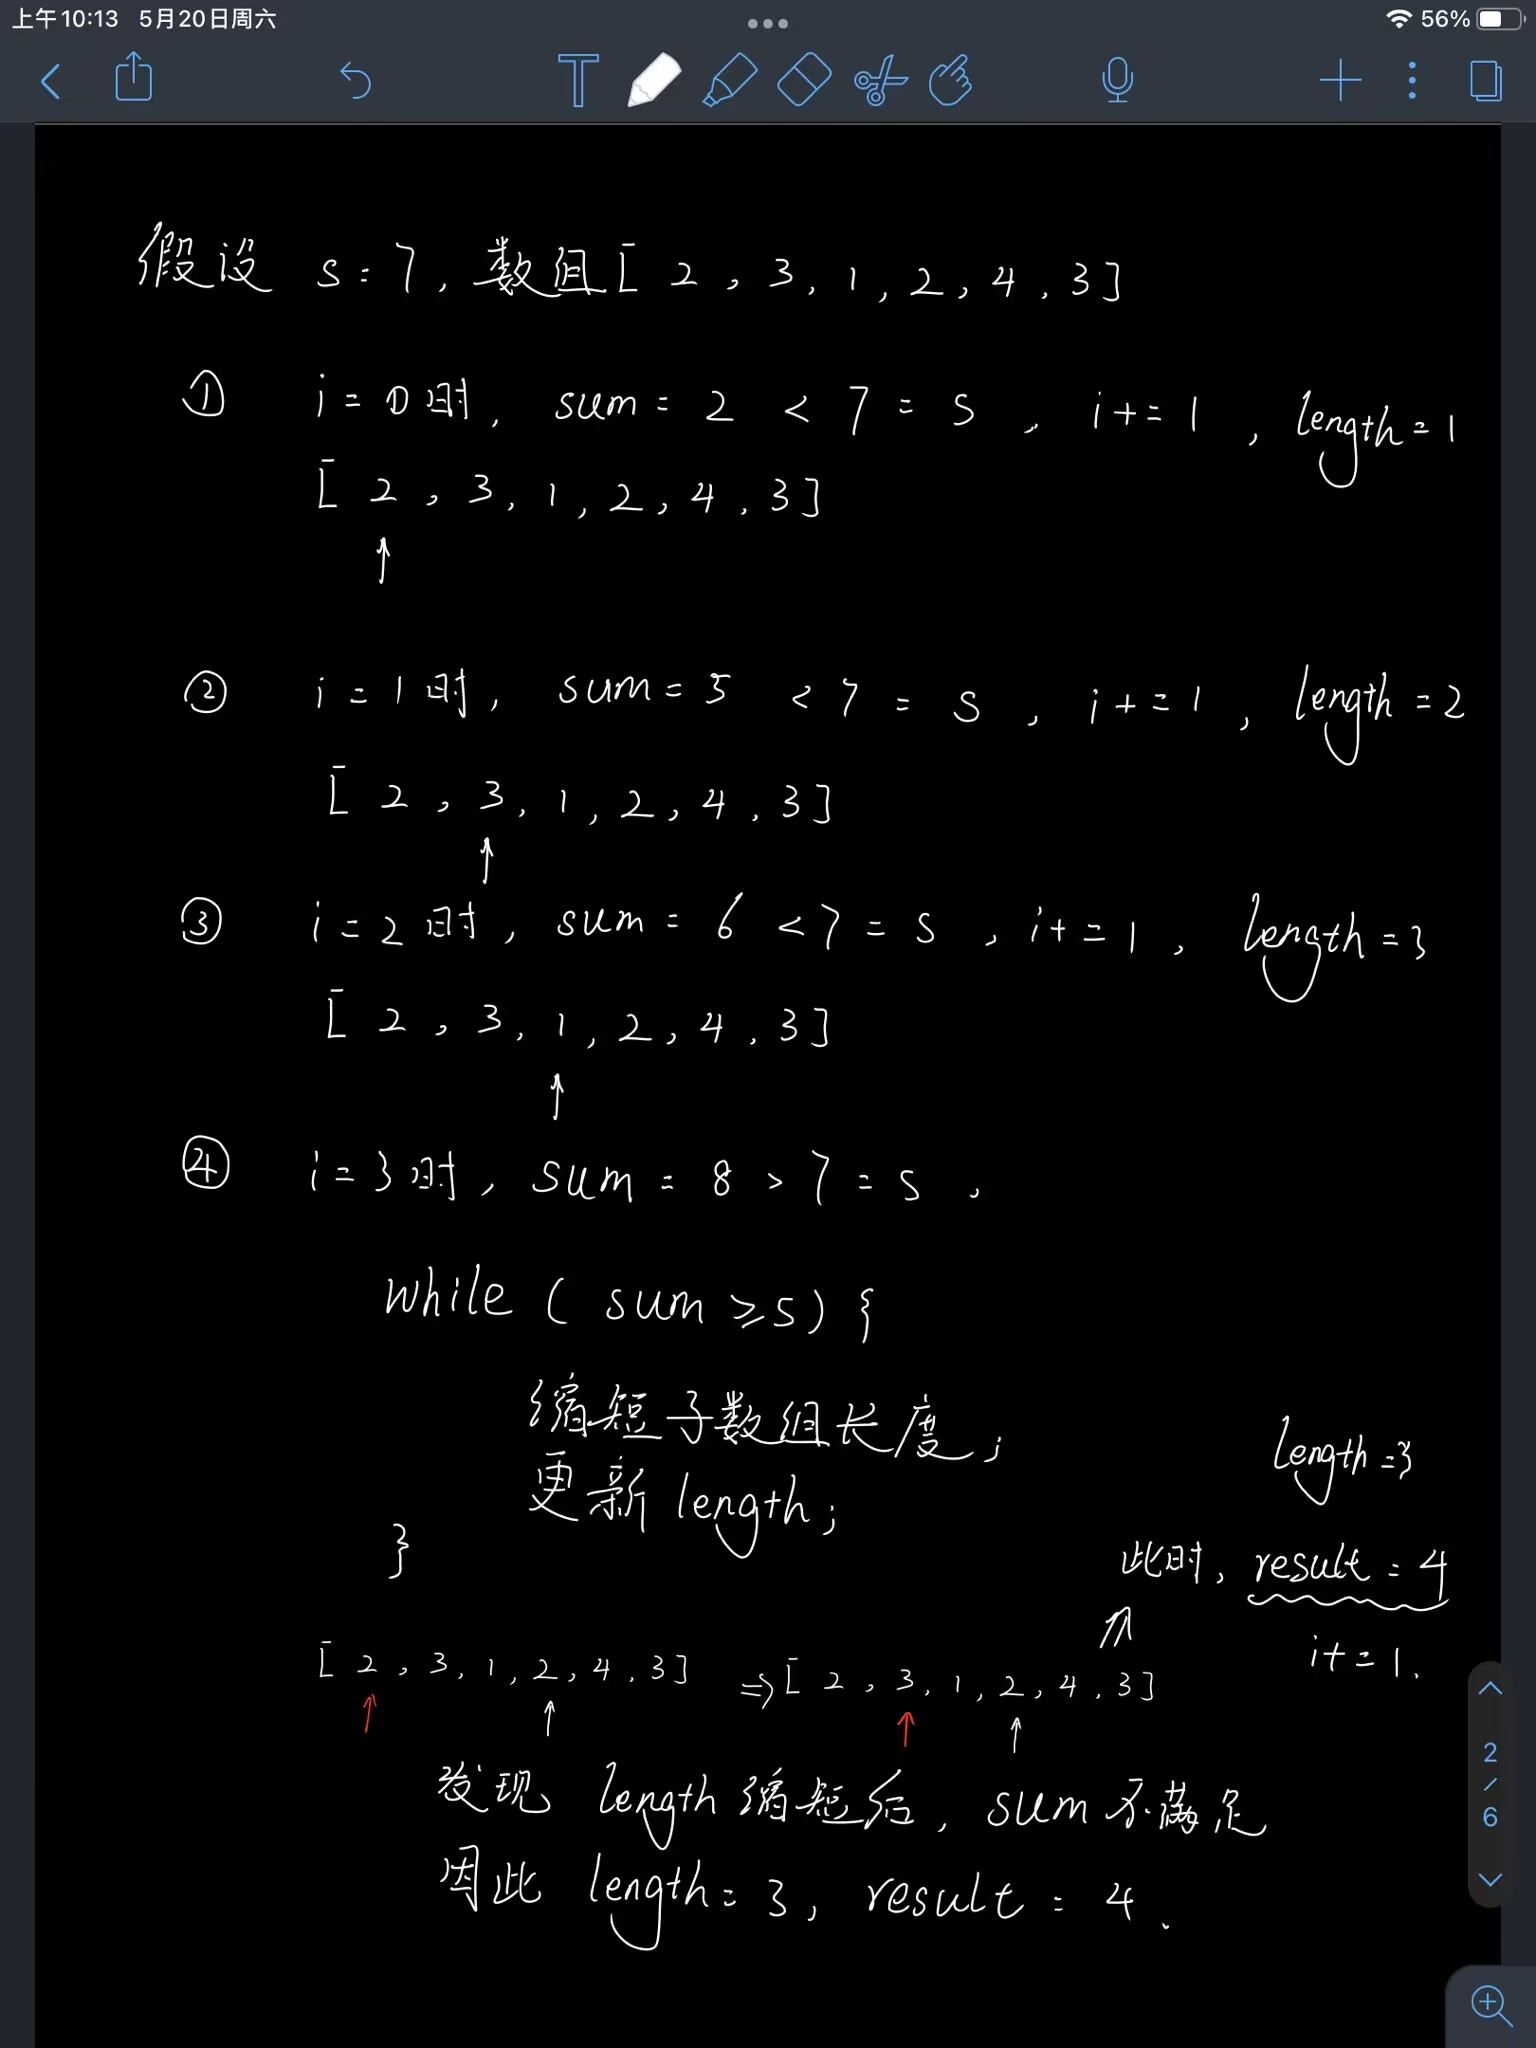 上午10:13 5月20日周六
56%
T
假设 s = 7, 数组[ 2 , 3 , 1 , 2 , 4 , 3 ]
① i = 0 时, sum = 2 < 7 = s , i += 1 , length = 1
[ 2 , 3 , 1 , 2 , 4 , 3 ]
↑
② i = 1 时, sum = 5 < 7 = s , i += 1 , length = 2
[ 2 , 3 , 1 , 2 , 4 , 3 ]
↑
③ i = 2 时, sum = 6 < 7 = s , i += 1 , length = 3
[ 2 , 3 , 1 , 2 , 4 , 3 ]
↑
④ i = 3 时, sum = 8 > 7 = s ,
while ( sum ≥ s ) {
缩短子数组长度;
更新 length;
}
length = 3
此时, result = 4
i += 1.
[ 2 , 3 , 1 , 2 , 4 , 3 ] => [ 2 , 3 , 1 , 2 , 4 , 3 ]
↑ ↑ ↑ ↑
发现 length 缩短后, sum 不满足
因此 length = 3, result = 4.
2
/
6